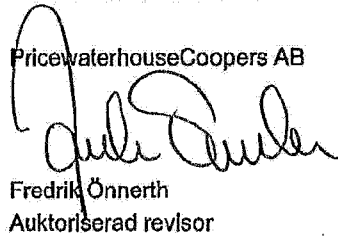 PricewaterhouseCoopers AB
Fredrik Önnerth
Auktoriserad revisor